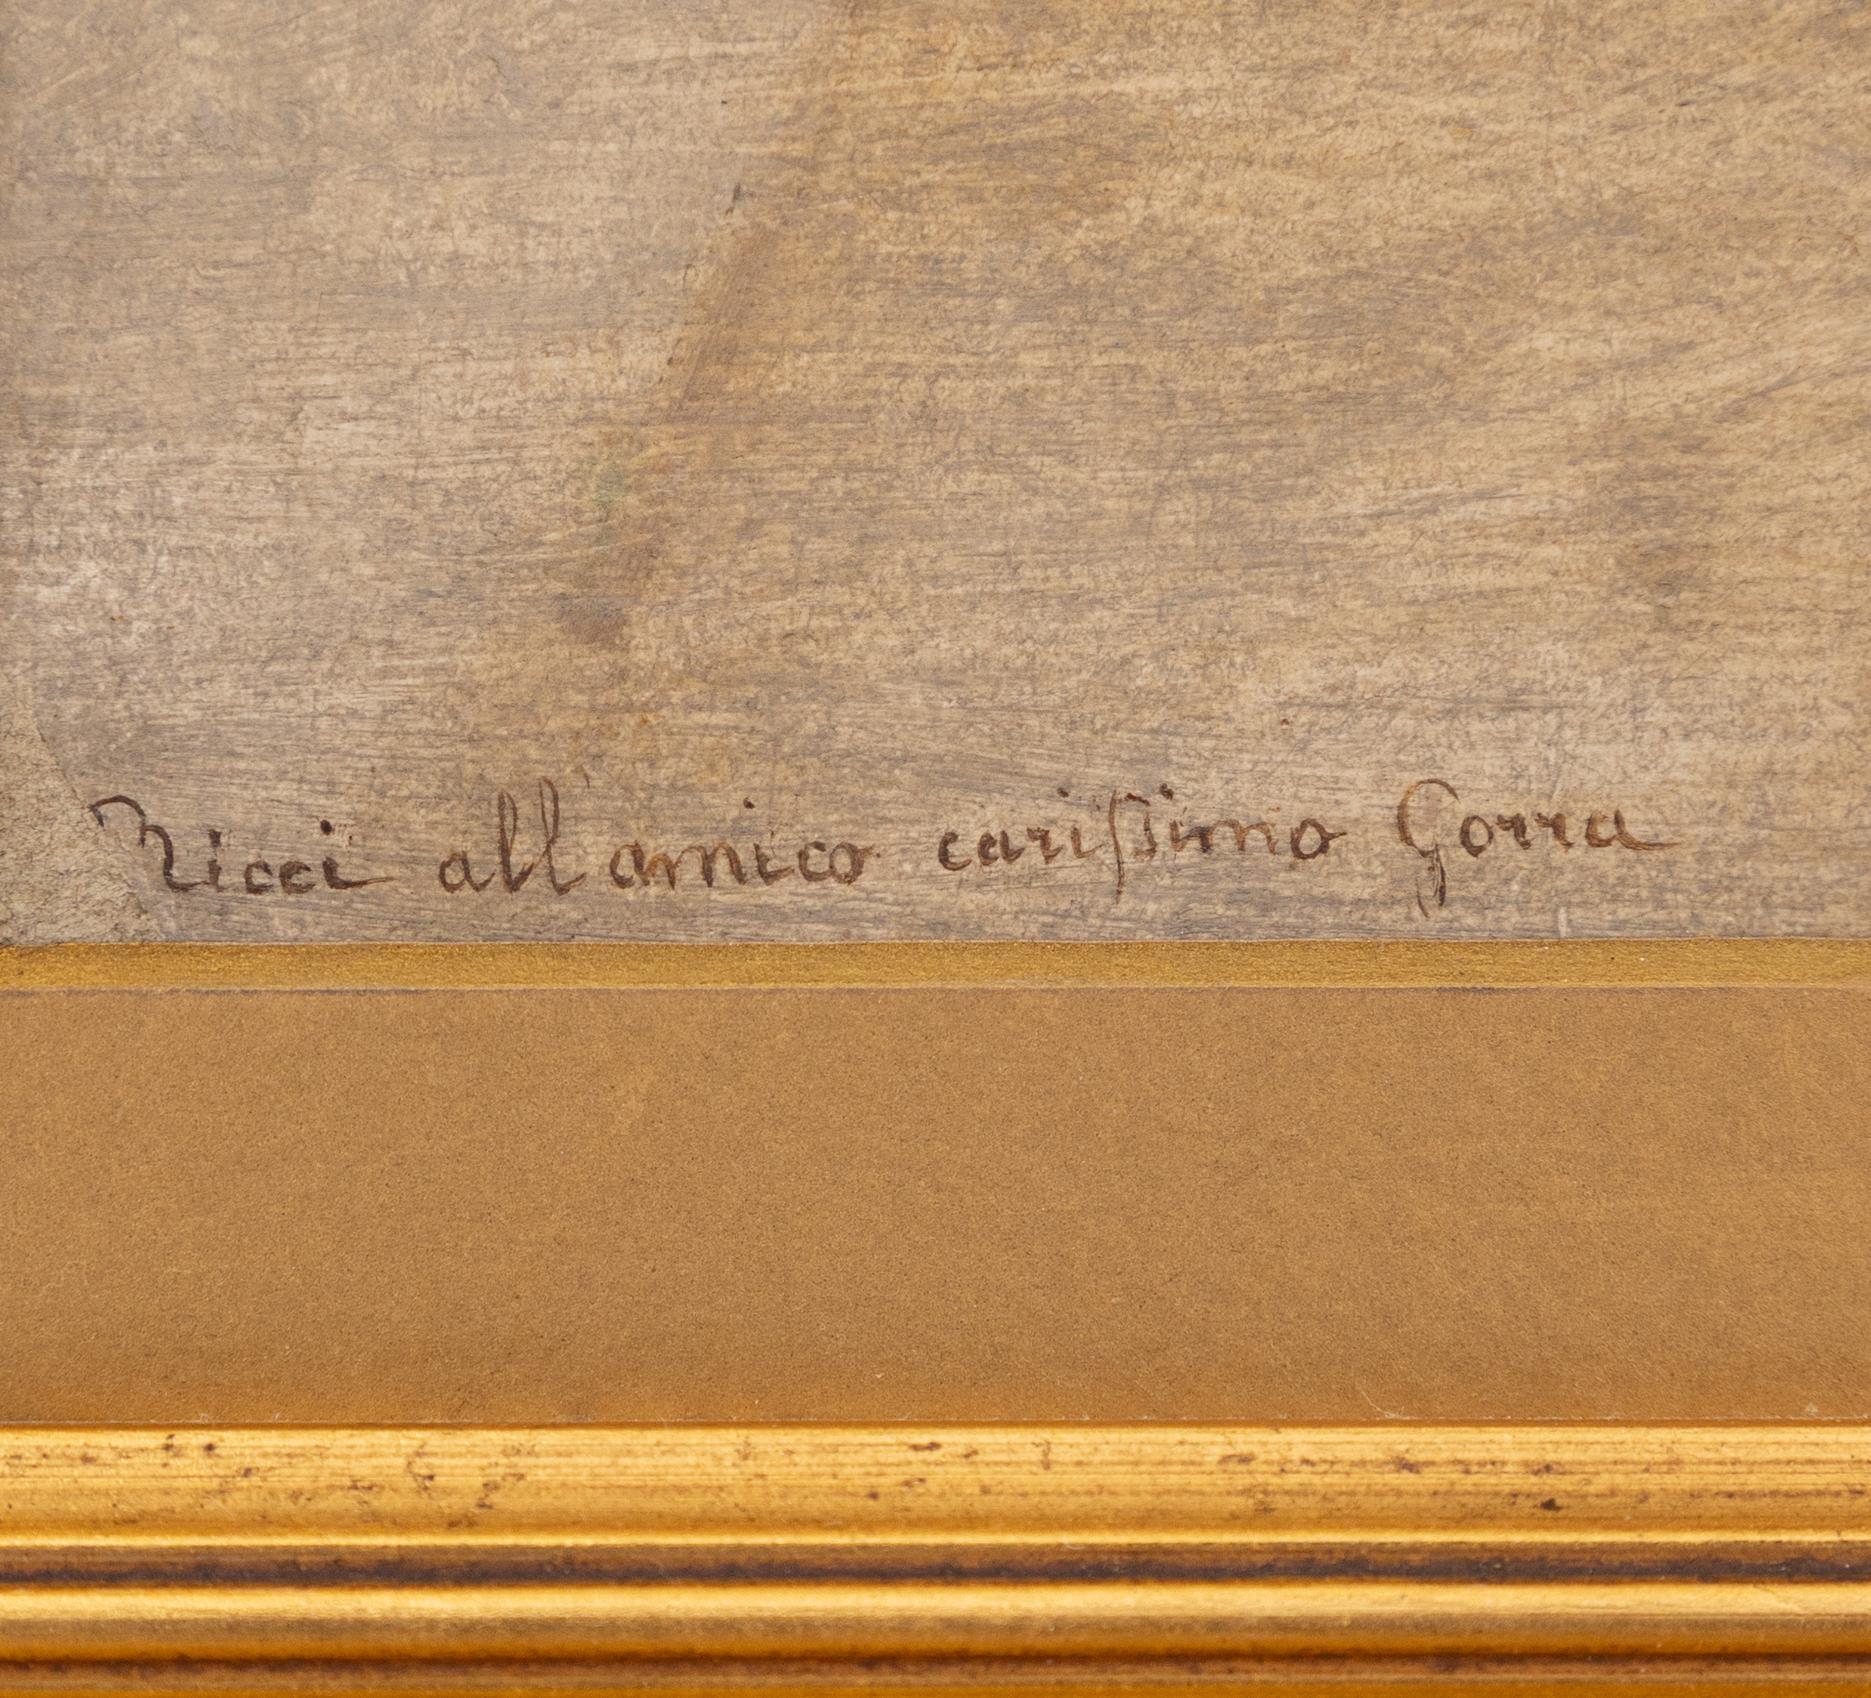 Ricci all'amico cariſsimo Gorra